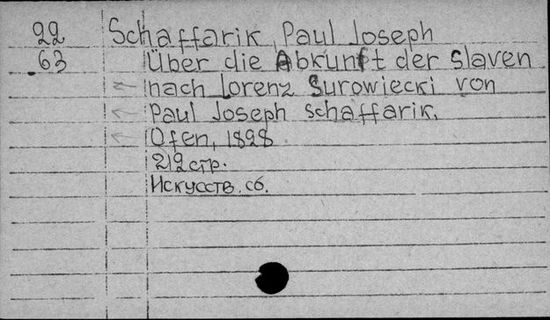 22 Schaffarik, Paul Joseph
63 Über die Abkunft der Slaven
nach Lorenz Surowiecki von
Paul Joseph Schaffarik.
Ofen, 1828.
212 стр.
Искусств. сб.